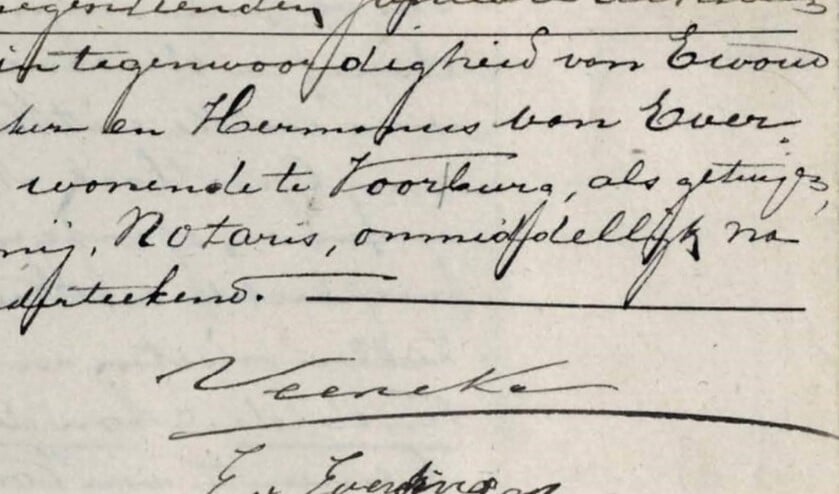 in tegenwoordigheid van Ewoud
ker en Hermanus van Ever-
wonende te Voorburg, als getuigen,
mij, Notaris, onmiddellijk na
derteekend.
Veeneka
E v Everdingen